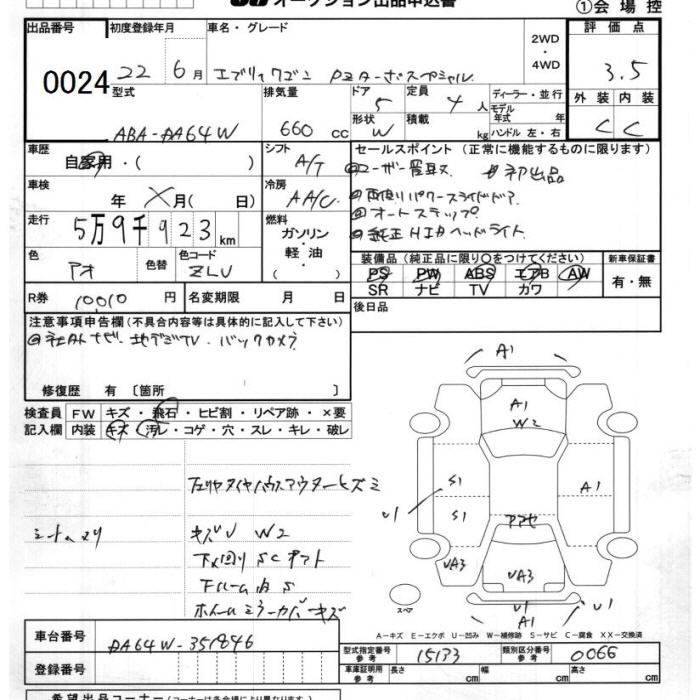 オークション出品申込書
①会場控
出品番号 初度登録年月 車名・グレード 2WD・4WD 評価点
0024 22 6月 エブリィワゴン PZターボスペシャル 3.5
型式 排気量 ドア 5 定員 4人 ディーラー・並行 外装 内装
ABA-DA64W 660cc 形状 W 積載 kg モデル年式 年式 ハンドル 左・右 C C
車歴 自家用・( ) シフト A/T セールスポイント (正常に機能するものに限ります)
車検 年 月( 日) 冷房 A/C
◎両側パワースライドドア
◎オートステップ
◎純正HIDヘッドライト
走行 5万9千923km 燃料 ガソリン・軽油・( )
色 アオ 色替 色コード ZLV
装備品 (純正品に限り○をつけてください) 新車保証書
PS PW ABS エアB AW 有・無
SR ナビ TV カワ
R券 10010円 名変期限 月 日 後日品
注意事項申告欄 (不具合内容等は具体的に記入して下さい)
◎社外ナビ.地デジTV.バックカメラ
修復歴 有 〔箇所 〕
検査員記入欄 FW キズ・飛石・ヒビ割・リペア跡・×要
内装 キズ・汚レ・コゲ・穴・スレ・キレ・破レ
左リヤタイヤハウスアウターヒズミ
キズU W2
下メ回り SC
ホイールミラーカバーキズ
A1
A1
W2
S1
S1
A1
U1
UA3
UA3
UA3
U1
A1
U1
スペア
A―キズ E―エクボ U―凹み W―補修跡 S―サビ C―腐食 XX―交換済
車台番号 DA64W-351846
登録番号
型式指定番号 参考 15133 類別区分番号 参考 0066
車庫証明用 参考 長さ cm 幅 cm 高さ cm
希望出品コーナー